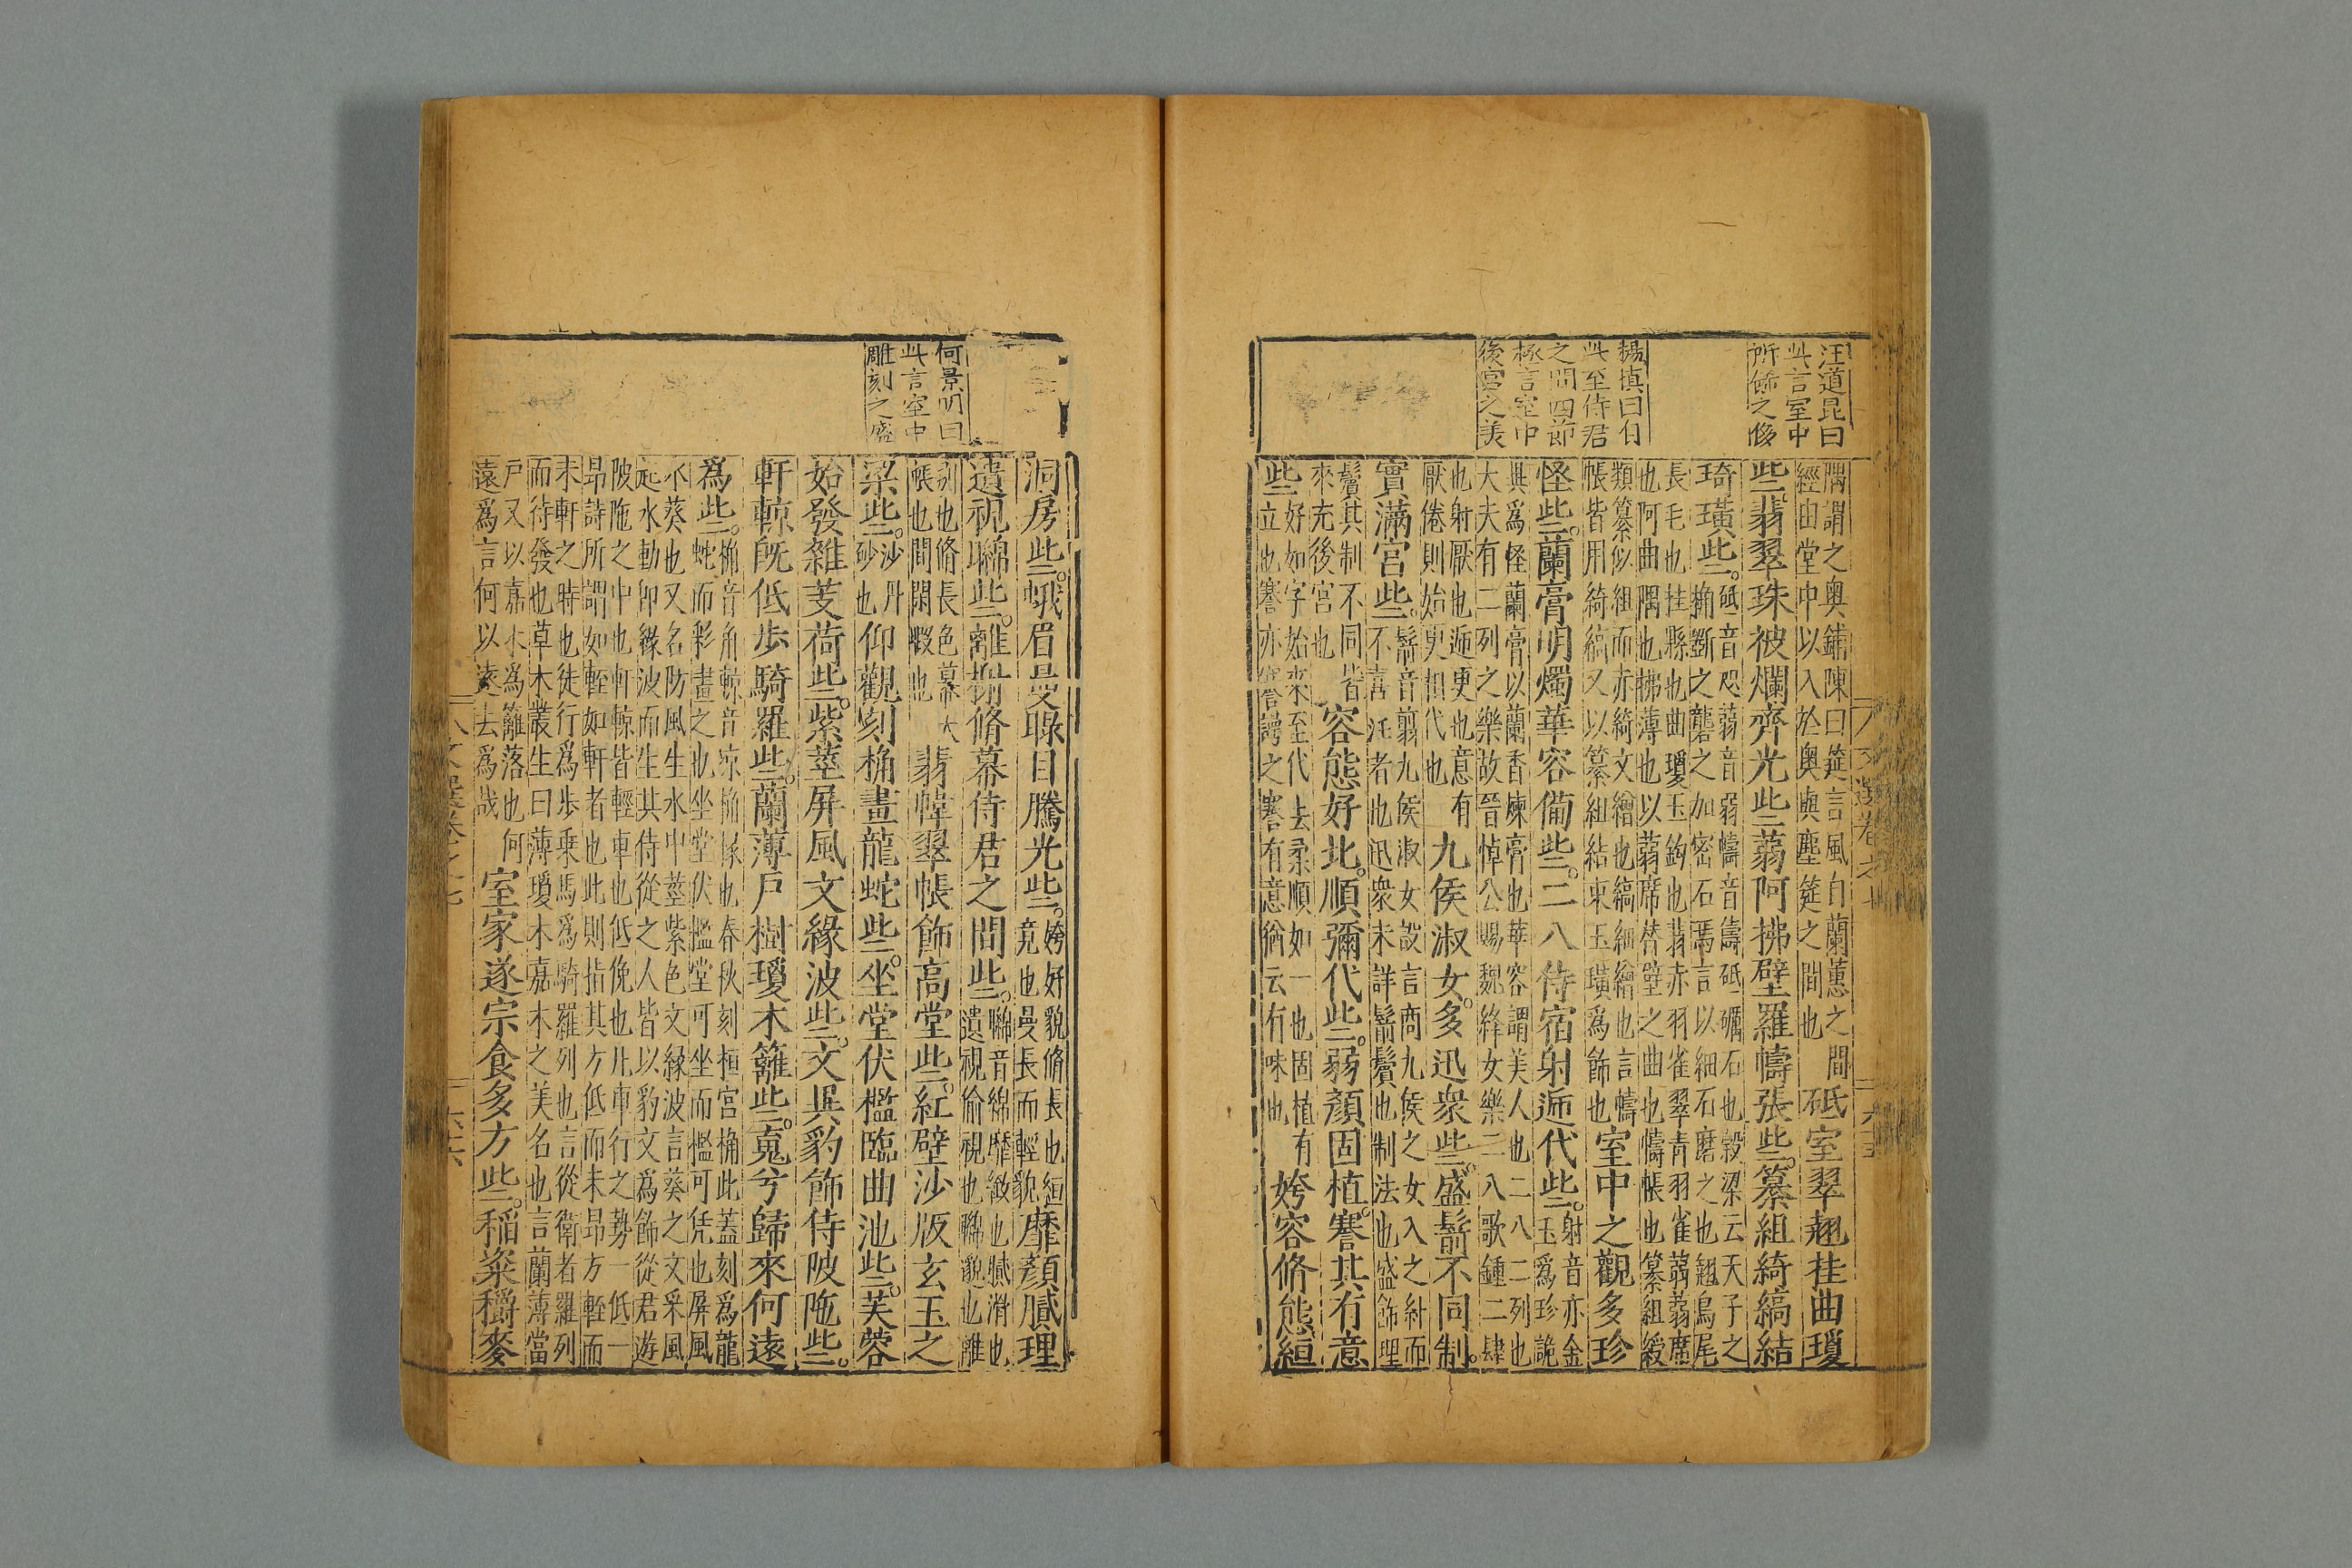 汪道昆曰
此言室中
所飾之侈
楊慎曰自
此至侍君
之間四節
極言室中
後宮之美
隅謂之奧鋪陳曰筵言風自蘭蕙之間
經由堂中以入於奧與塵筵之間也
砥室翠翹挂曲瓊
些翡翠珠被爛齊光些蒻阿拂壁羅幬張些纂組綺縞結
琦璜些
砥音咫蒻音弱幬音儔砥礪石也穀梁云天子之
桷斲之礱之加密石焉言以細石磨之也翹鳥尾
長毛也挂縣也曲瓊玉鉤也翡赤羽雀翠青羽雀蒻蒻席
也阿曲隅也拂薄也以蒻席替壁之曲也幬帳也纂組綬
類纂似組而赤綺文繒也縞細繒也言幬
帳皆用綺縞又以纂組結束玉璜爲飾也
室中之觀多珍
怪些蘭膏明燭華容備些二八侍宿射遞代些
射音亦金
玉爲珍詭
異爲怪蘭膏以蘭香煉膏也華容謂美人也二八二列也
大夫有二列之樂故晉悼公賜魏絳女樂二八歌鍾二肆
也射厭也遞更也意有
厭倦則始更相代也
九侯淑女多迅衆些盛鬋不同制
實滿宮些
鬋音翦九侯淑女設言商九侯之女入之紂而
不喜汪者也迅衆未詳鬋鬢也制法也盛飾理
鬢其制不同皆
來充後宮也
容態好比順彌代些弱顏固植謇其有意
些
好如字始來至代去柔順如一也固植有
立也謇亦發語之謇有意猶云有味也
姱容脩態絙
何景明曰
此言室中
雕刻之盛
洞房些蛾眉曼睩目騰光些
姱好貌脩長也絙
竟也曼長而輕貌
靡顏膩理
遺視矊些離榭脩幕侍君之間些
矊音綿靡緻也膩滑也
遺視偷視也矊貌也離
別也脩長色幕大
帳也間閑暇也
翡帷翠帳飾高堂些紅壁沙版玄玉之
梁些
沙丹
砂也
仰觀刻桷畫龍蛇些坐堂伏檻臨曲池些芙蓉
始發雜芰荷些紫莖屏風文緣波些文異豹飾侍陂陁些
軒輬旣低步騎羅些蘭薄戶樹瓊木籬些䰟兮歸來何遠
爲些
桷音角輬音凉桷椽也春秋刻桓宮桷此蓋刻爲龍
蛇而彩畫之也坐堂伏檻堂可坐而檻可凭也屏風
水葵也又名防風生水中莖紫色文緣波言葵之文采風
起水動卽緣波而生其侍從之人皆以豹文爲飾從君遊
陂陁之中也軒輬皆輕車也低俛也凡車行之勢一低一
昂詩所謂如輊如軒者也此則指其方低而未昂方輊而
未軒之時也徒行爲步乗馬爲騎羅列也言從衛者羅列
而待發也草木叢生曰薄瓊木嘉木之美名也言蘭薄當
戶又以嘉木爲籬落也何
遠爲言何以遠去爲哉
室家遂宗食多方些稻粢穱麥